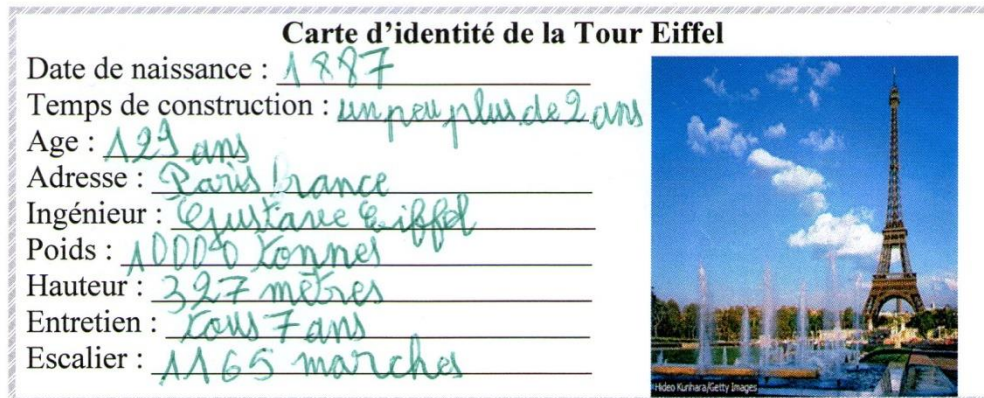 Carte d'identité de la Tour Eiffel
Date de naissance : 1887
Temps de construction : un peu plus de 2 ans
Age : 129 ans
Adresse : Paris france
Ingénieur : Gustave Eiffel
Poids : 10000 tonnes
Hauteur : 327 mètres
Entretien : tous 7 ans
Escalier : 1165 marches
Hideo Kurihara/Getty Images